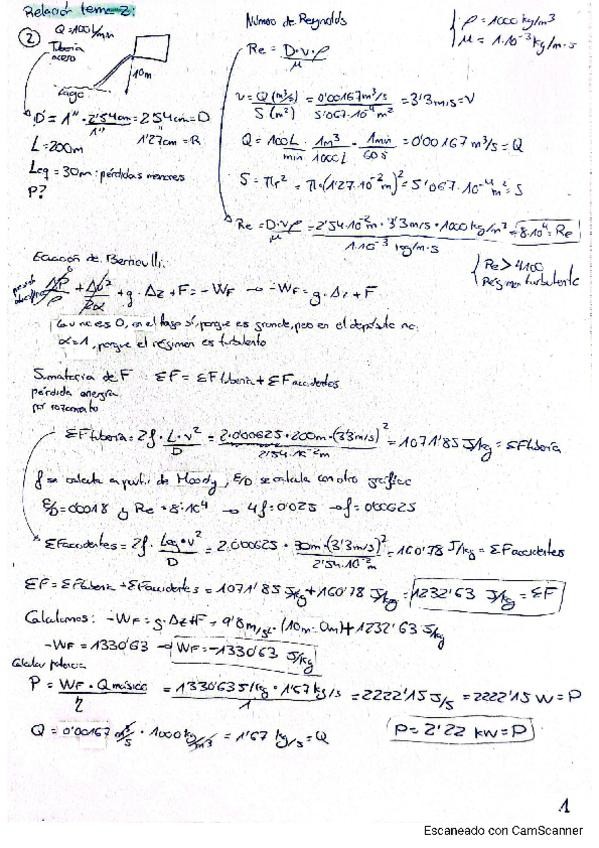 Relación tema 2:
2
Q=100 L/min
Tubería acero
10m
Lago
D = 1" · 2'54cm / 1" = 2'54cm = D
1'27cm = R
L = 200m
Leq = 30m: pérdidas menores
P?
Número de Reynolds
ρ = 1000 kg/m³
μ = 1·10⁻³ kg/m·s
Re = D·v·ρ / μ
v = Q (m³/s) / S (m²) = 0'00167 m³/s / 5'067·10⁻⁴ m² = 3'3 m/s = v
Q = 100L / min · 1m³ / 1000L · 1min / 60s = 0'00167 m³/s = Q
S = πr² = π·(1'27·10⁻² m)² = 5'067·10⁻⁴ m² = S
Re = D·v·ρ / μ = 2'54·10⁻² m · 3'3 m/s · 1000 kg/m³ / 1·10⁻³ kg/m·s = 8·10⁴ = Re
Re > 4100
Régimen turbulento
Ecuación de Bernoulli:
ΔP/ρ + Δv²/2α + g·Δz + F = -WF → -WF = g·Δz + F
α=1, porque el régimen es turbulento
Sumatoria de F ΣF = ΣF tubería + ΣF accidentes
pérdida energía
por rozamiento
ΣF tubería = 2f · L·v² / D = 2·0'00625 · 200m·(3'3m/s)² / 2'54·10⁻² m = 1071'85 J/kg = ΣF tubería
f se calcula a partir de Moody, E/D se calcula con otro gráfico
E/D = 0'0018 y Re = 8·10⁴ → 4f = 0'025 → f = 0'00625
ΣF accidentes = 2f · Leq·v² / D = 2·0'00625 · 30m·(3'3m/s)² / 2'54·10⁻² m = 160'78 J/kg = ΣF accidentes
ΣF = ΣF tubería + ΣF accidentes = 1071'85 J/kg + 160'78 J/kg = 1232'63 J/kg = ΣF
Calculamos: -WF = g·Δz + F = 9'8 m/s² · (10m - 0m) + 1232'63 J/kg
-WF = 1330'63 → WF = -1330'63 J/kg
Calcular potencia
P = WF · Q másico / η = 1330'63 J/kg · 1'67 kg/s / 1 = 2222'15 J/s = 2222'15 W = P
Q = 0'00167 m³/s · 1000 kg/m³ = 1'67 kg/s = Q
P = 2'22 kW = P
1
Escaneado con CamScanner